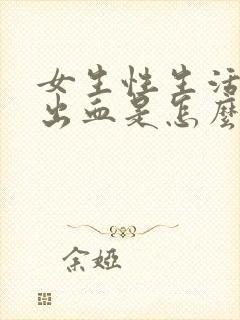 女生性生活
出血是怎麼
余婭